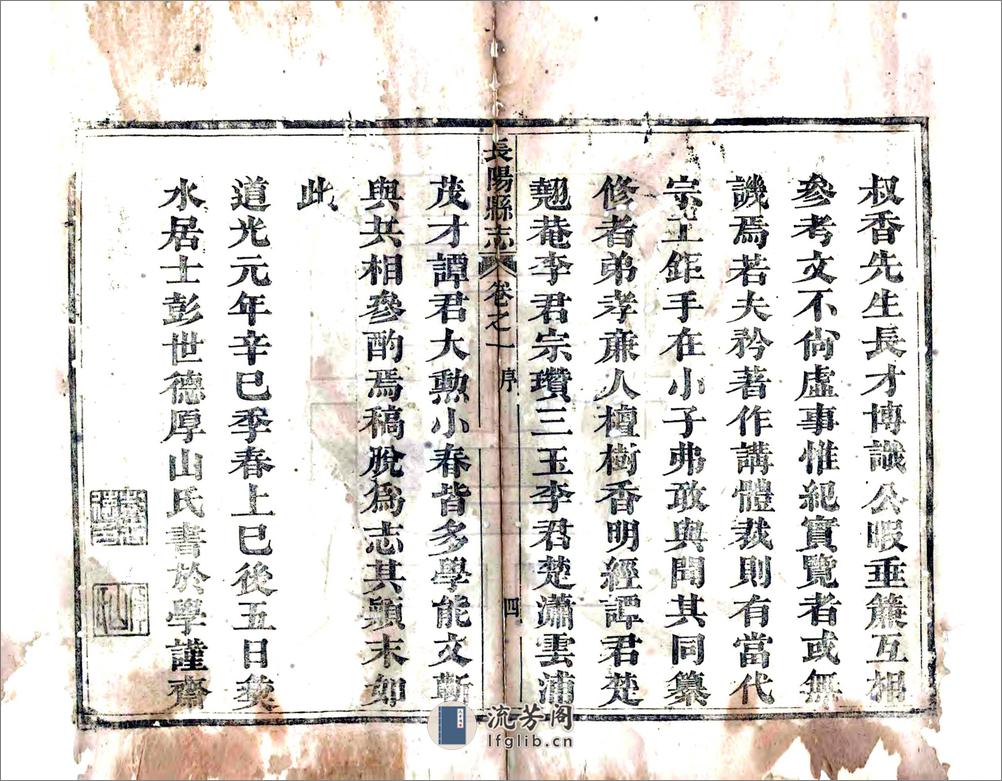 叔香先生長才博識公暇垂簾互相
參考文不尙虛事惟紀實覽者或無
譏焉若夫矜著作講體裁則有當代
宗工鉅手在小子弗敢與聞其同纂
修者弟孝亷人檀樹香明經譚君楚
翹菴李君宗瓚三玉李君楚瀟雲浦
長陽縣志 卷之一 序 四
茂才譚君大勲小春皆多學能文嶄
與共相參酌焉稿脫爲志其顚末如
此
道光元年辛巳季春上巳後五日㷼
水居士彭世德厚山氏書於學謹齋
流芳阁
lfglib.cn